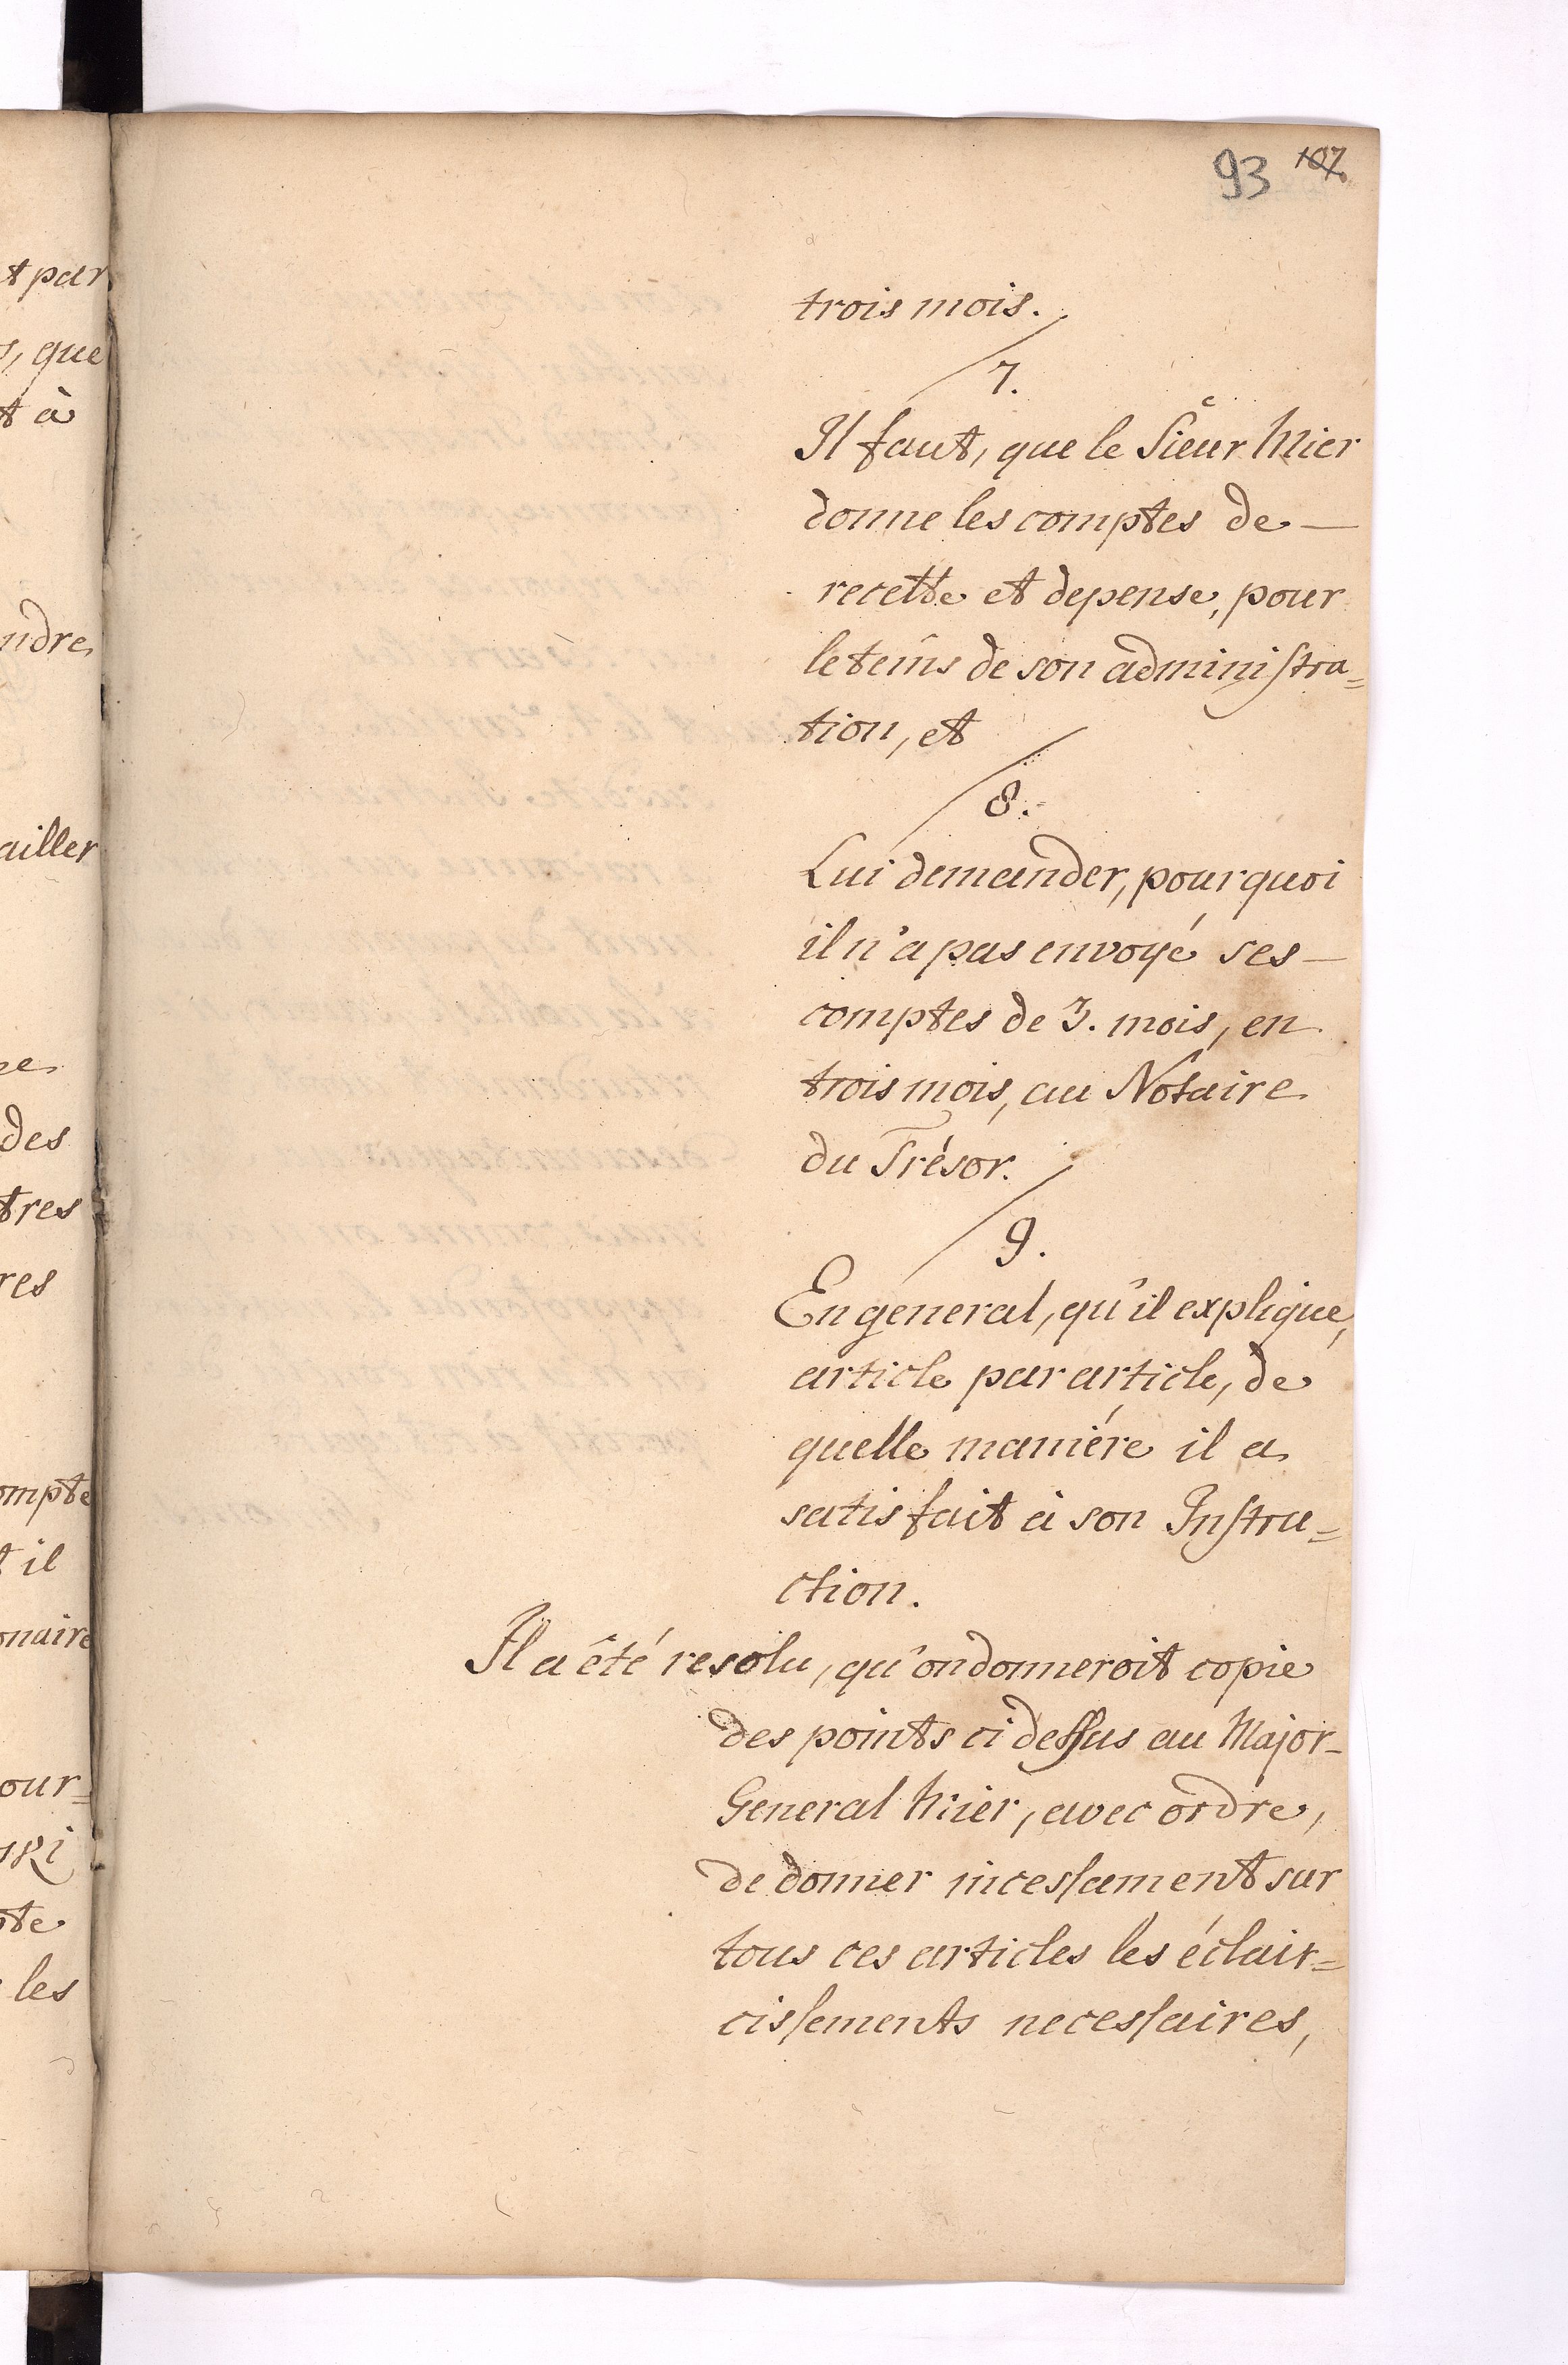 93 107.
trois mois.
7.
Il faut, que le Sieur Mier
donne les comptes de —
recette et depense, pour
le tems de son administra=
tion, et
8.
Lui demander, pourquoi
il n'a pas envoyé ses —
comptes de 3. mois, en
trois mois, au Notaire
du Trésor.
9.
En general, qu'il explique,
article par article, de
quelle maniére il a
satisfait à son Instru=
ction.
Il a été resolu, qu'on donneroit copie
des points ci dessus au Major-
General Mier, avec ordre,
de donner incessament sur
tous ces articles les éclair=
cissements necessaires,
t par
s, que
t à
ndre
ailler
des
tres
res
ompte
t il
onaire
our=
ski
te
les